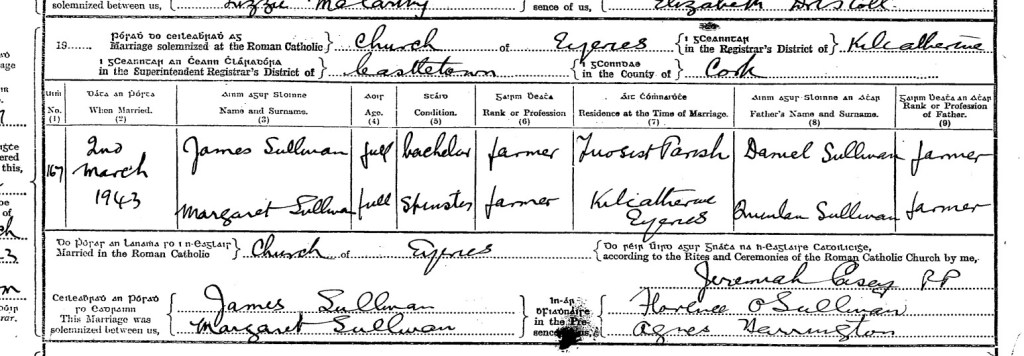 solemnized between us, Lizzie McCarthy sence of us, Elizabeth Driscoll
19 pórad do ceileabrad ag
Marriage solemnized at the Roman Catholic } Church of Eyeries { i gceanntar in the Registrar's District of } Kilcatherine
i gceanntar an Ceann Cláradóra
in the Superintendent Registrar's District of } Castletown { i gConndae in the County of } Cork
Uimh. No. (1) Dáta an Pórta When Married. (2) Ainm agus Sloinne Name and Surname. (3) Aois Age. (4) Stáid Condition. (5) Gairm Beata Rank or Profession (6) Áit Cómnaidte Residence at the Time of Marriage. (7) Ainm agus Sloinne an Atar Father's Name and Surname. (8) Gairm Beata an Atar Rank or Profession of Father. (9)
167 2nd March 1943 James Sullivan full bachelor farmer Tuosist Parish Daniel Sullivan farmer
Margaret Sullivan full Spinster farmer Kilcatherine Eyeries Quinlan Sullivan farmer
Do pórad an lánama so i n-eaglais
Married in the Roman Catholic } Church of Eyeries { Do réir Uird agus Gnáta na h-Eaglaise Catoilicige,
according to the Rites and Ceremonies of the Roman Catholic Church by me,
Jeremiah Casey P P
Ceileabrad an pórad so eadrainn
This Marriage was solemnized between us, { James Sullivan
Margaret Sullivan } in-ár in the Presence of us, { Florence O'Sullivan
Agnes Harrington